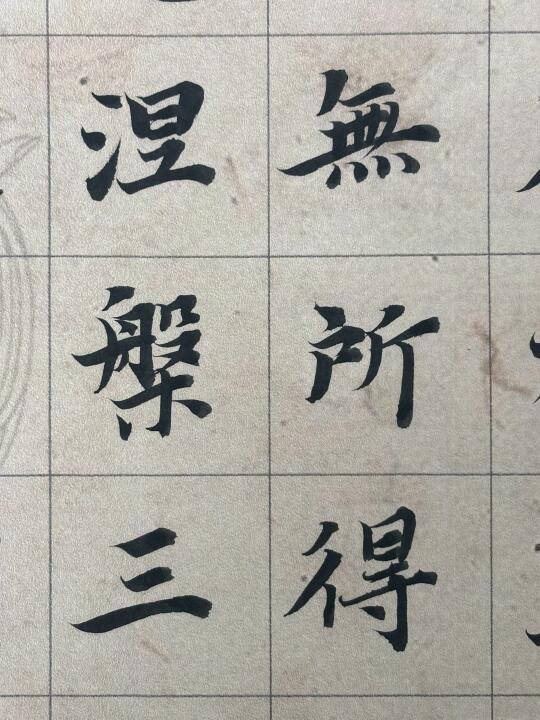 無所得
涅槃三